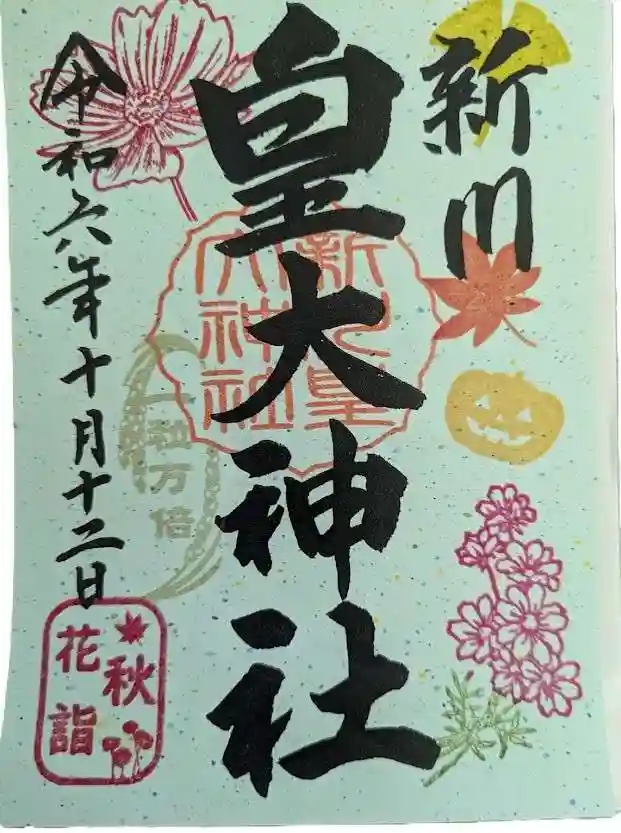 新川
皇大神社
新川皇
大神社
一粒万倍
令和六年十月十二日
秋
花詣